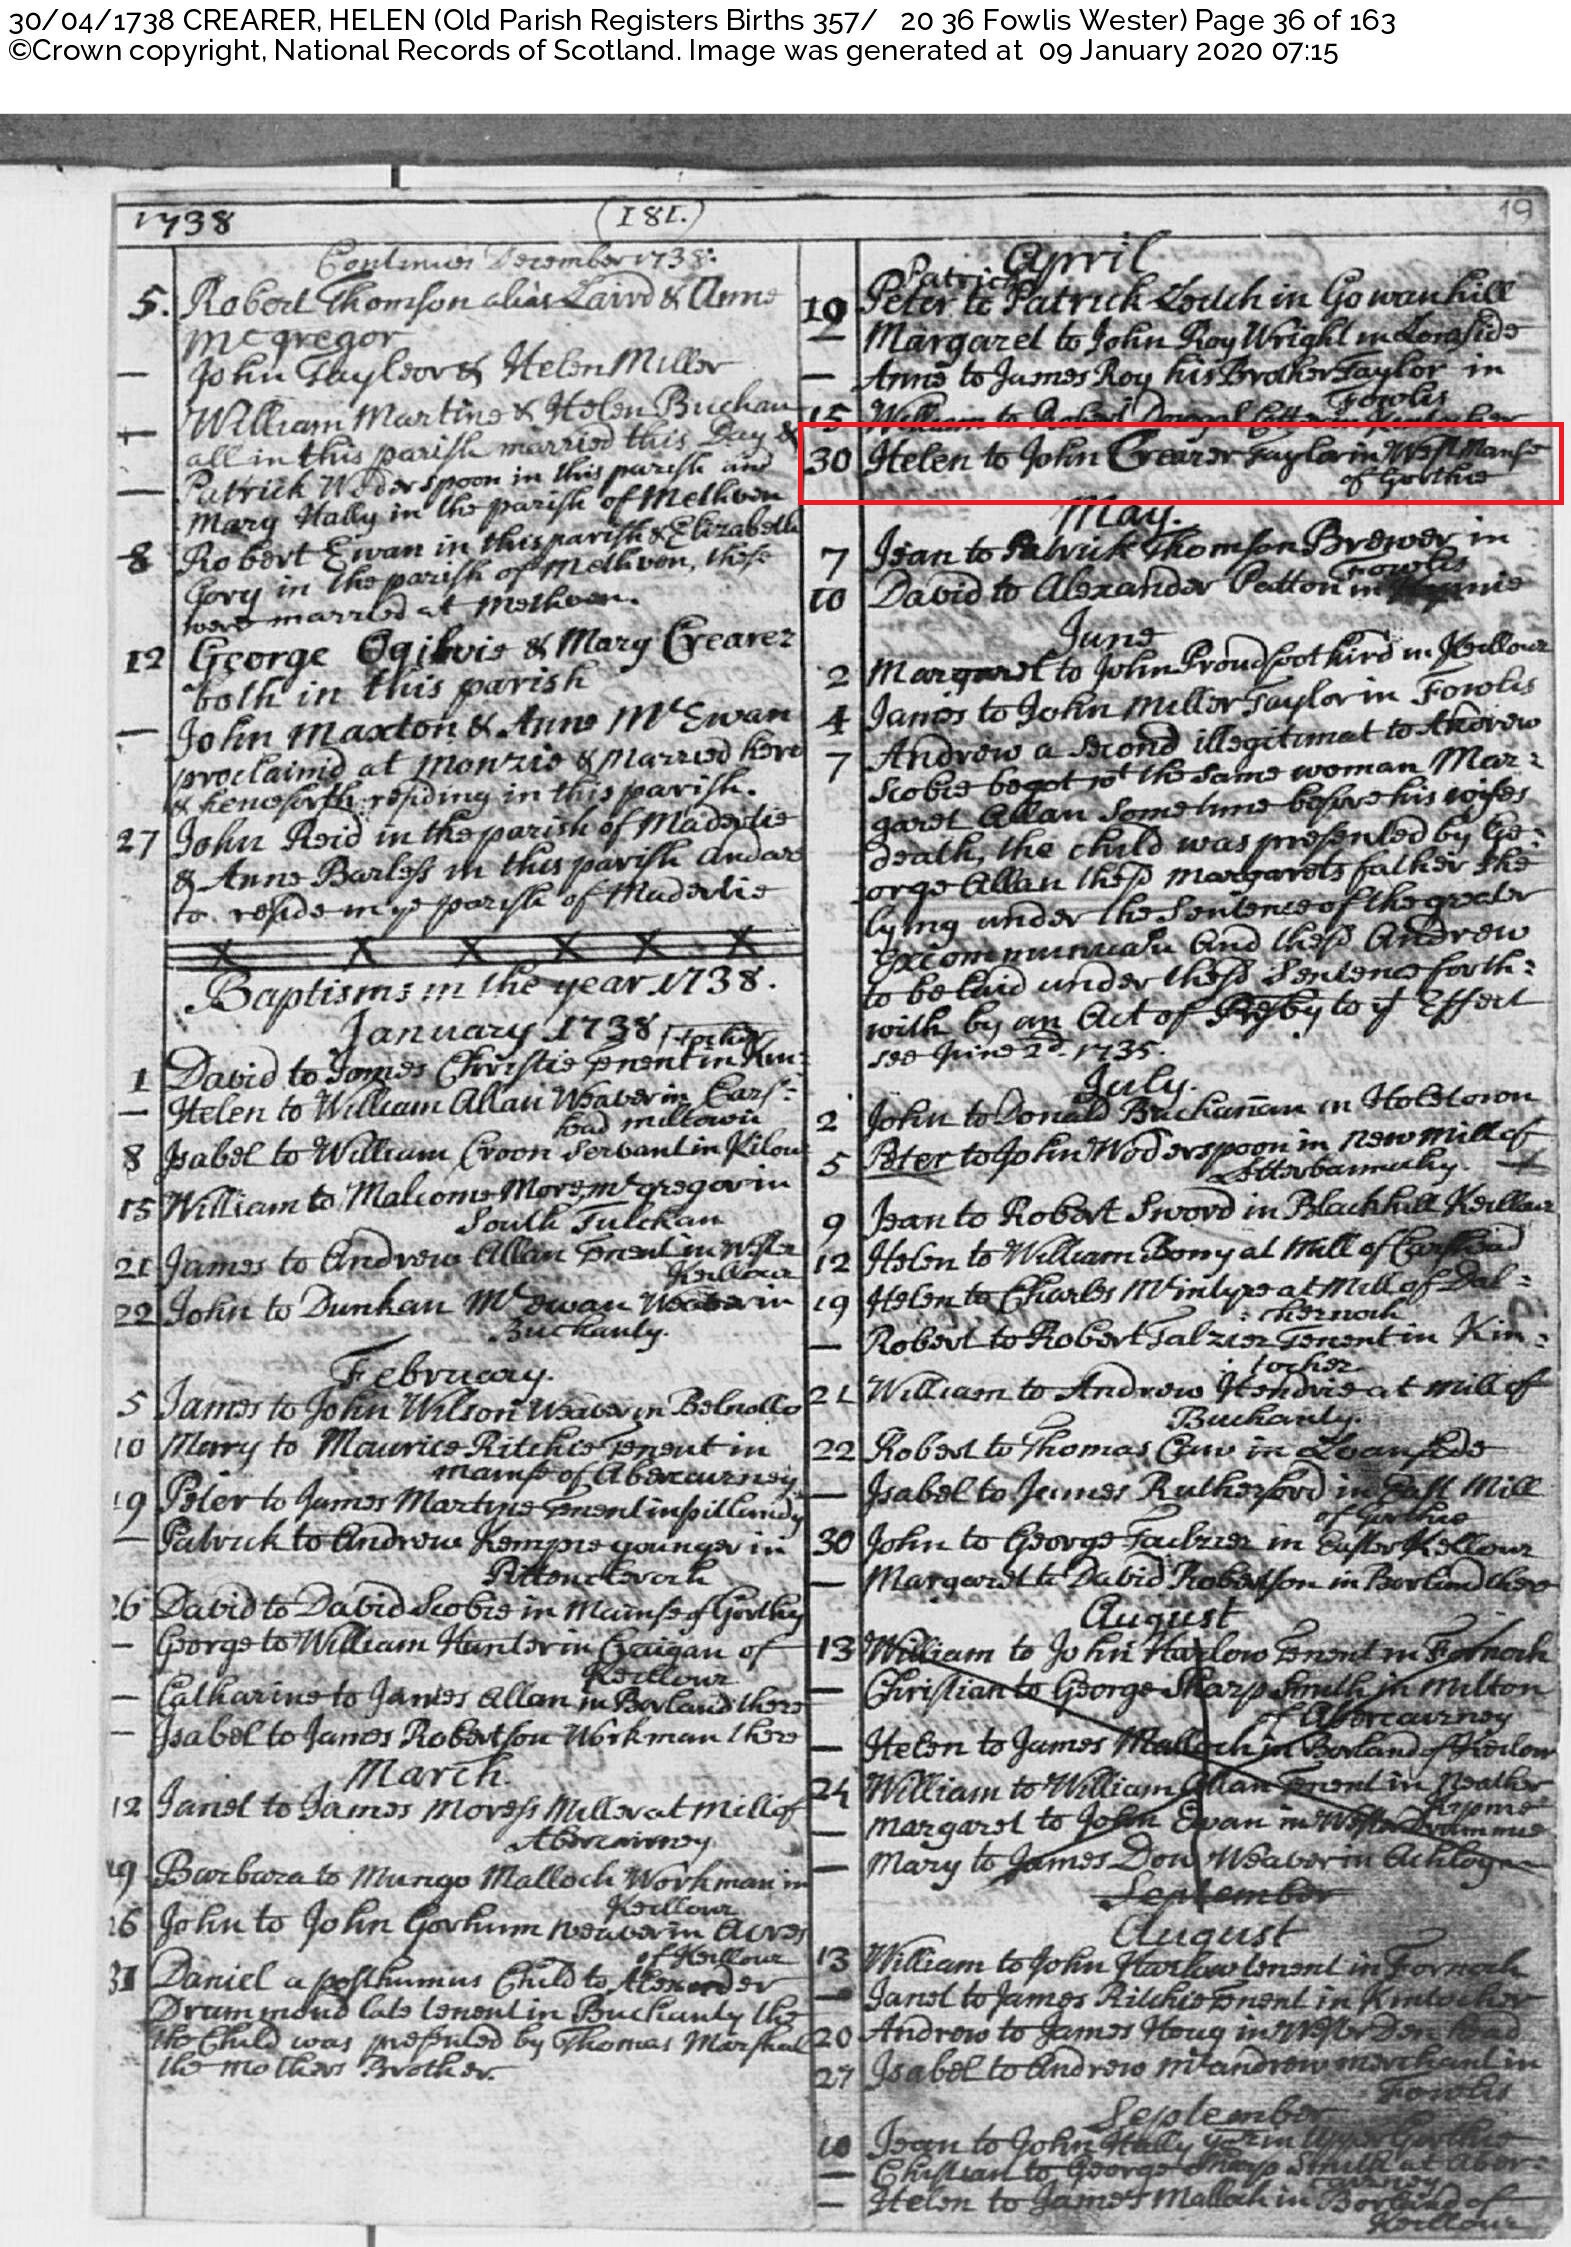 30/04/1738 CREARER, HELEN (Old Parish Registers Births 357/ 20 36 Fowlis Wester) Page 36 of 163
©Crown copyright, National Records of Scotland. Image was generated at 09 January 2020 07:15
1738
(181.)
19
Continues December 1738:
5. Robert Thomson alias Laird & Anne
McGregor
— John Tayleor & Helen Miller
— William Martine & Helen Buchan
all in this parish married this Day &
— Patrick Woderspoon in this parish and
Mary Hally in the parish of Methven
8 Robert Ewan in this parish & Elizabeth
Gory in the parish of Methven, these
were married at Methven.
12 George Ogilvie & Mary Crearer
both in this parish
— John Maxton & Anne McEwan
proclaimd at Monzie & Married here
& henceforth residing in this parish.
27 John Reid in the parish of Maderlie
& Anne Barless in this parish and are
to reside in ye parish of Maderlie
Baptisms in the year 1738.
January 1738
tocher
1 David to James Christie Tenent in Kin:
— Helen to William Allan Weaver in Cars:
head milltown
8 Isabel to William Croon Servant in Kilou
15 William to Malcome More McGregor in
South Tulchan
21 James to Andrew Allan Tenent in Wester
Keillour
22 John to Dunkan McEwan Weaver in
Buchanty.
February.
5 James to John Wilson Weaver in Belnollo
10 Merry to Maurice Ritchie Tenent in
mainse of Abercairney
19 Peter to James Martine Tenent in pillundy
— Patrick to Andrew Kempie younger in
Pittencleroch
26 David to David Scobie in Mainse of Gorthy
— George to William Hunter in Craigan of
Keillour
— Catharine to James Allan in Borland there
— Isabel to James Robertson Workman there
March.
12 Janet to James Moress Miller at mill of
Abercairney
19 Barbara to Mungo Malloch Workman in
Keillour
26 John to John Gorhum Weaver in Acres
of Keillour
31 Daniel a posthumus Child to Alexander
Drummond late tenent in Buchanty the
the Child was presented by Thomas Marshal
the mothers Brother.
April
Patrick
10 Peter to Patrick Leitch in Gowanhill
— Margaret to John Roy Wright in Loanside
— Anne to James Roy his Brother Taylor in
Fowlis
15 William to Robert Dougal
30 Helen to John Crearer Taylor in West Manse
of Gorthie
May.
7 Jean to Patrick Thomson Brewer in
Fowlis
10 David to Alexander Patton in
June
2 Margaret to John Proudfoot hird in Keillour
4 James to John Miller Taylor in Fowlis
7 Andrew a second illegitimat to Andrew
Scobie begot wt the same woman Mar:
garet Allan sometime before his wifes
death, the child was presented by Ge:
orge Allan the sd Margarets father she
lying under the Sentence of the greater
excommunicatn and the sd Andrew
to be laid under the sd Sentence forth:
with by an Act of Presby to yt Effect
see June 2d. 1735.
July.
2 John to Donald Buchannan in Holetown
5 Peter to John Woderspoon in New mill of
Letterbannachy.
9 Jean to Robert Sword in Blackhill Keillour
12 Helen to William Bony at Mill of Carshead
19 Helen to Charles McIntyre at Mill of Dal:
:hernoch
— Robert to Robert Talzier Tenent in Kin:
:tocher
21 William to Andrew Hendrie at mill of
Buchanty.
22 Robert to Thomas Caw in Loanside
— Isabel to James Rutherford in East Mill
of Gorthie
30 John to George Faulzier in Easter Keillour
— Margaret to David Robertson in Borland there
August
13 William to John Harlow Tenent in Fornoch
— Christian to George Sharp Smith in Milton
of Abercairney
— Helen to James Malloch in Borland of Keilour
24 William to William Allan Tenent in Neather
— Margaret to John Ewan in Wester Drummie
— Mary to James Dow Weaver in
September
August
13 William to John Harlow tenent in Fornoch
— Janet to James Ritchie Tenent in Kintocher
20 Andrew to James Houg in Wester Den head
27 Isabel to Andrew McAndrew merchant in
Fowlis
September
10 Jean to John Hally in Upper Gorthie
— Christian to George Sharp Smith at Aber:
cairney
— Helen to James Malloch in Borland of
Keillour